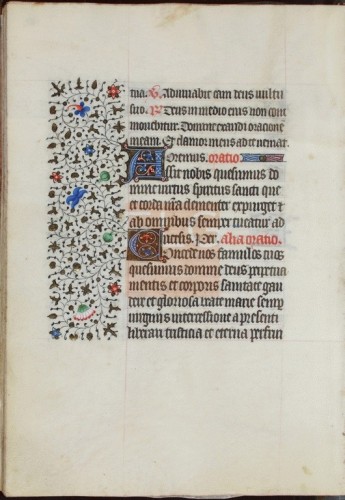 tua. V. Adiuuabit eam deus uultu
suo. R. Deus in medio eius non com
mouebitur. Domine exaudi oracione
meam. Et clamor meus ad te ueniat.
Oremus. oratio
Assit nobis quesumus do
mine uirtus spiritus sancti que
et corda nostra clementer expurget et
ab omnibus semper tueatur ad
uersis. Per. alia oratio.
Concede nos famulos tuos
quesumus domine deus perpetua
mentis et corporis sanitate gau
dere et gloriosa beate marie semp
uirginis intercessione a presenti
liberari tristicia et eterna perfrui